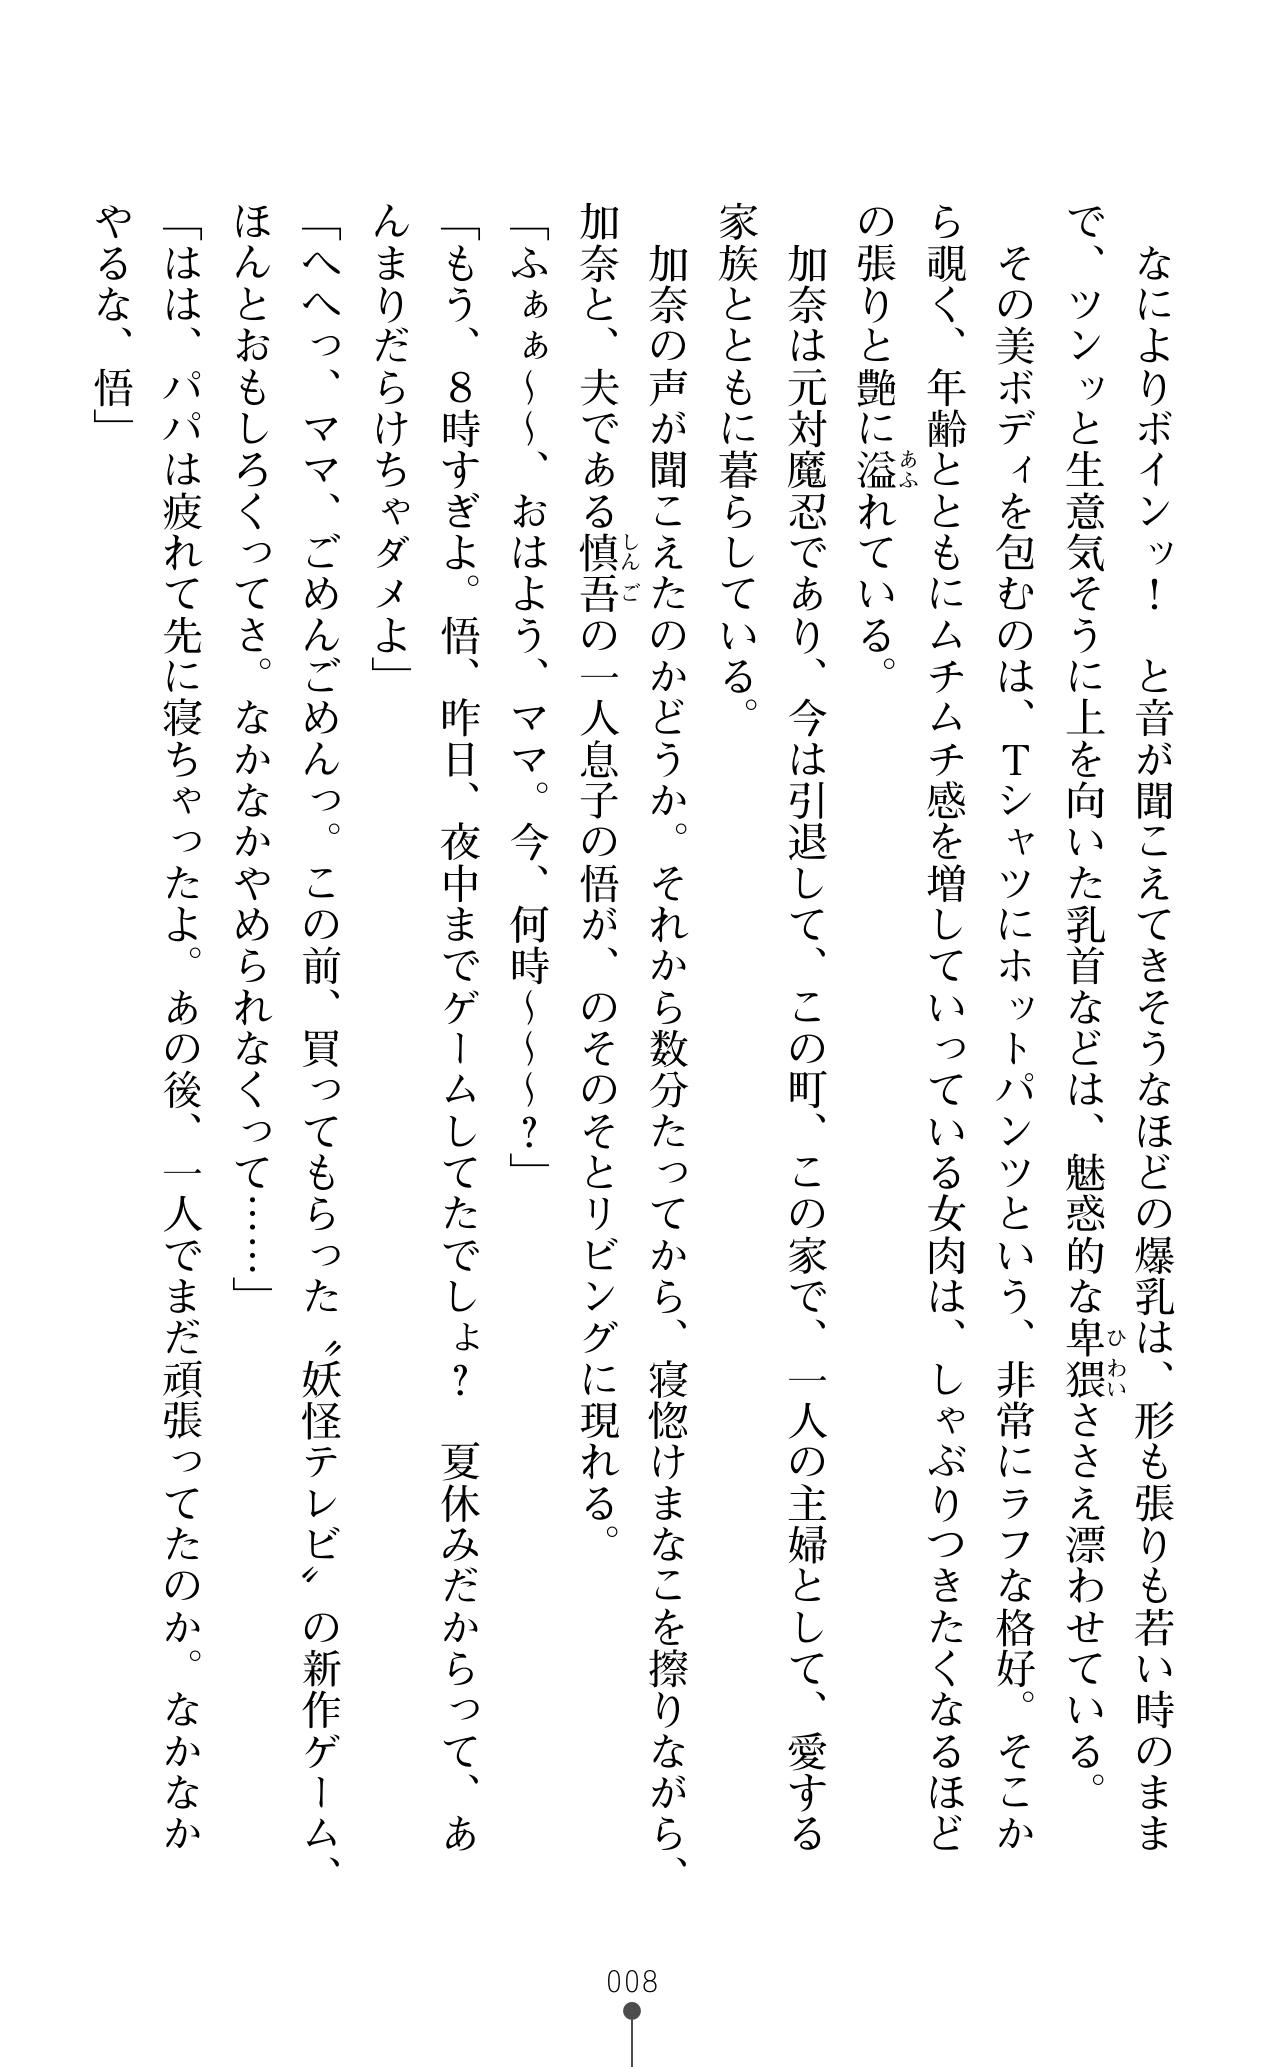 なによりボインッ！　と音が聞こえてきそうなほどの爆乳は、形も張りも若い時のまま
で、ツンッと生意気そうに上を向いた乳首などは、魅惑的な卑猥ささえ漂わせている。
その美ボディを包むのは、Tシャツにホットパンツという、非常にラフな格好。そこか
ら覗く、年齢とともにムチムチ感を増していっている女肉は、しゃぶりつきたくなるほど
の張りと艶に溢れている。
加奈は元対魔忍であり、今は引退して、この町、この家で、一人の主婦として、愛する
家族とともに暮らしている。
加奈の声が聞こえたのかどうか。それから数分たってから、寝惚けまなこを擦りながら、
加奈と、夫である慎吾の一人息子の悟が、のそのそとリビングに現れる。
「ふぁぁ～～、おはよう、ママ。今、何時～～～？」
「もう、８時すぎよ。悟、昨日、夜中までゲームしてたでしょ？　夏休みだからって、あ
んまりだらけちゃダメよ」
「へへっ、ママ、ごめんごめんっ。この前、買ってもらった〝妖怪テレビ〟の新作ゲーム、
ほんとおもしろくってさ。なかなかやめられなくって……」
「はは、パパは疲れて先に寝ちゃったよ。あの後、一人でまだ頑張ってたのか。なかなか
やるな、悟」
008